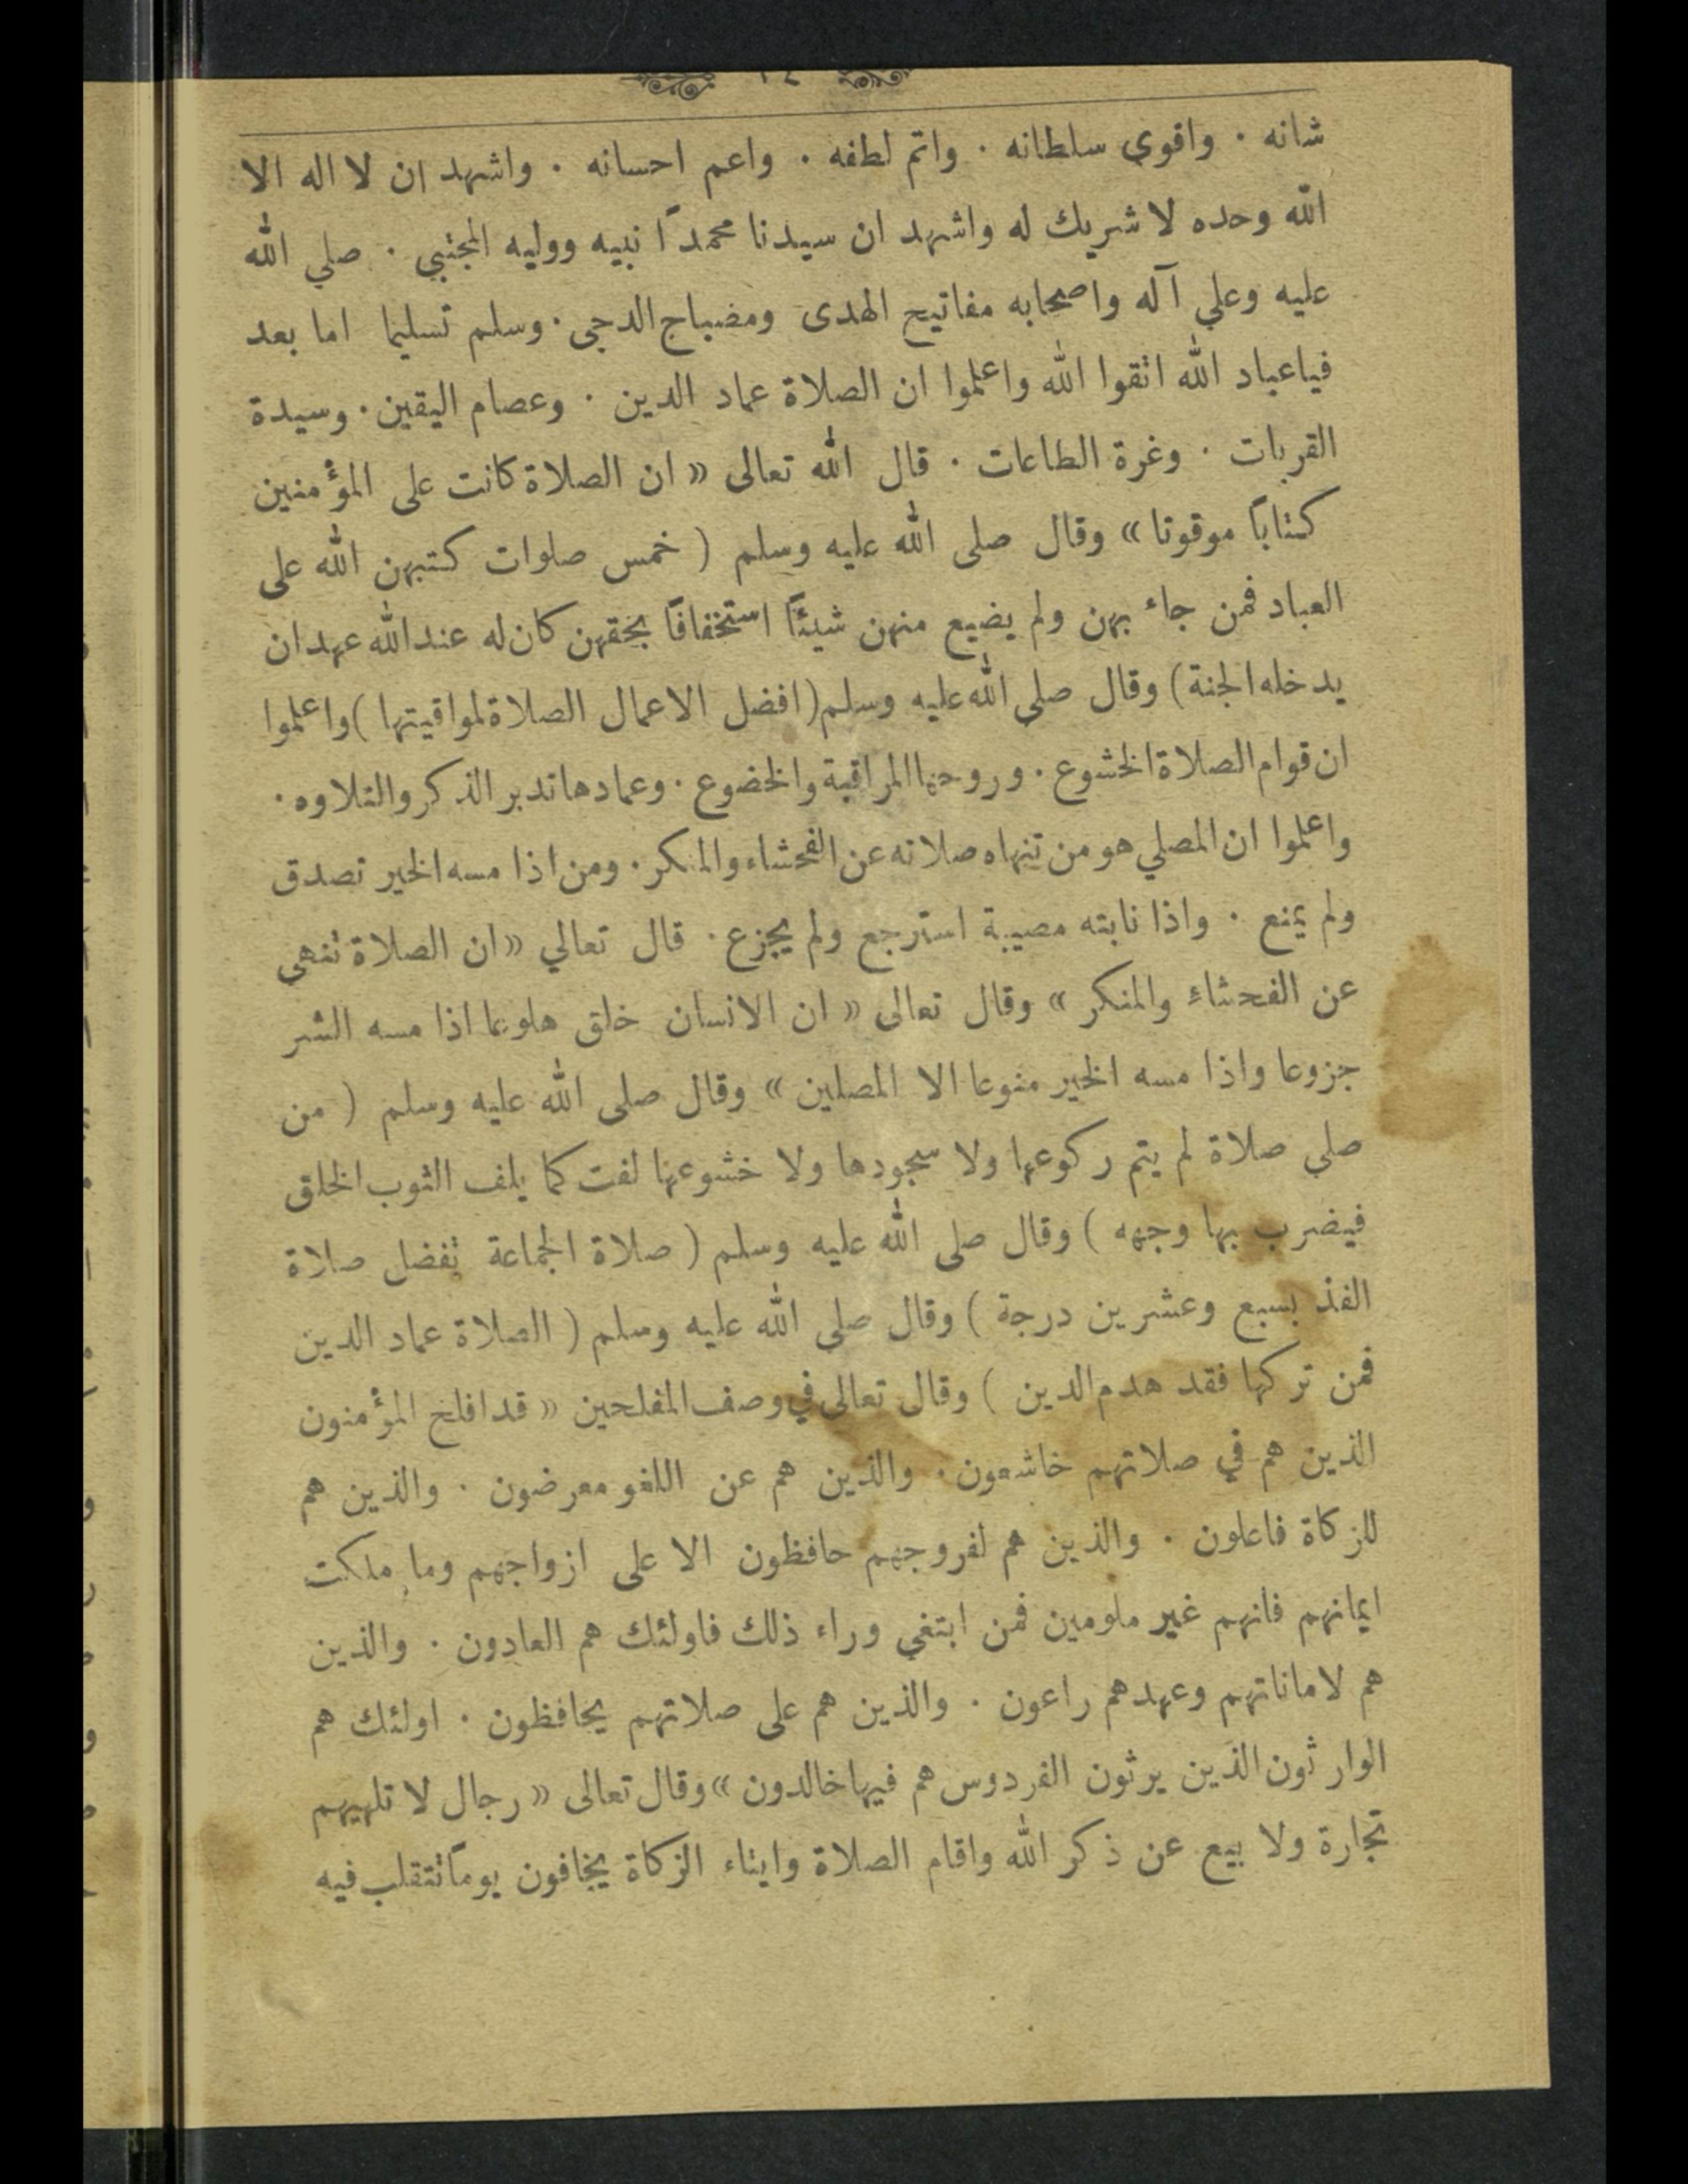 شانه . واقوى سلطانه . واتم لطفه . واعم احسانه . واشهد ان لا اله الا
الله وحده لا شريك له واشهد ان سيدنا محمداً نبيه ووليه المجتبي . صلي الله
عليه وعلي آله واصحابه مفاتيح الهدى ومضباح الدجى . وسلم تسليما اما بعد
فياعباد الله اتقوا الله واعلموا ان الصلاة عماد الدين . وعصام اليقين . وسيدة
القربات . وغرة الطاعات . قال الله تعالى « ان الصلاة كانت على المؤمنين
كتاباً موقوتا » وقال صلى الله عليه وسلم ( خمس صلوات كتبهن الله على
العباد فمن جاء بهن ولم يضيع منهن شيئاً استخفافاً بحقهن كان له عند الله عهد ان
يدخله الجنة ) وقال صلى الله عليه وسلم ( افضل الاعمال الصلاة لمواقيتها ) واعلموا
ان قوام الصلاة الخشوع . وروحها المراقبة والخضوع . وعمادها تدبر الذكر والتلاوه .
واعلموا ان المصلي هو من تنهاه صلاته عن الفحشاء والمنكر . ومن اذا مسه الخير تصدق
ولم يمنع . واذا نابته مصيبة استرجع ولم يجزع . قال تعالي « ان الصلاة تنهى
عن الفحشاءِ والمنكر » وقال تعالى « ان الانسان خلق هلوعا اذا مسه الشر
جزوعا واذا مسه الخير منوعا الا المصلين » وقال صلى الله عليه وسلم ( من
صلى صلاة لم يتم ركوعها ولا سجودها ولا خشوعها لفت كما يلف الثوب الخلق
فيضرب بها وجهه ) وقال صلى الله عليه وسلم ( صلاة الجماعة تفضل صلاة
الفذ بسبع وعشرين درجة ) وقال صلى الله عليه وسلم ( الصلاة عماد الدين
فمن تركها فقد هدم الدين ) وقال تعالى في وصف المفلحين « قد افلح المؤمنون
الذين هم في صلاتهم خاشعون . والذين هم عن اللغو معرضون . والذين هم
للزكاة فاعلون . والذين هم لفروجهم حافظون الا على ازواجهم وما ملكت
ايمانهم فانهم غير ملومين فمن ابتغى وراء ذلك فاولئك هم العادون . والذين
هم لاماناتهم وعهدهم راعون . والذين هم على صلاتهم يحافظون . اولئك هم
الوارثون الذين يرثون الفردوس هم فيها خالدون » وقال تعالى « رجال لا تلهيهم
تجارة ولا بيع عن ذكر الله واقام الصلاة وايتاء الزكاة يخافون يوماً تتقلب فيه